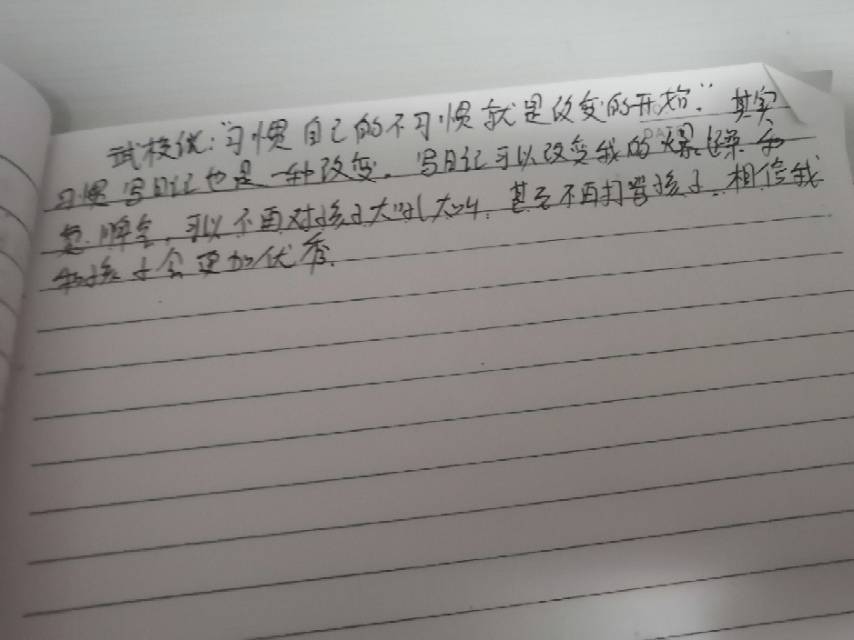 武校说:"习惯自己的不习惯就是改变的开始."其实
习惯写日记也是一种改变.写日记可以改变我的暴躁和
急脾气,可以不再对孩子大吼大叫,甚至不再打骂孩子,相信我
和孩子会更加优秀.